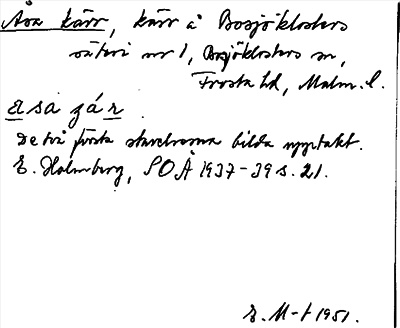 Åsa kärr, kärr å Bosjöklosters
säteri nr 1, Bosjöklosters sn,
Frosta hd, Malm. l.
asa zár
De två första stavelserna bilda upptakt.
E. Holmberg, SOÅ 1937-39 s. 21.
E. M-t 1951.